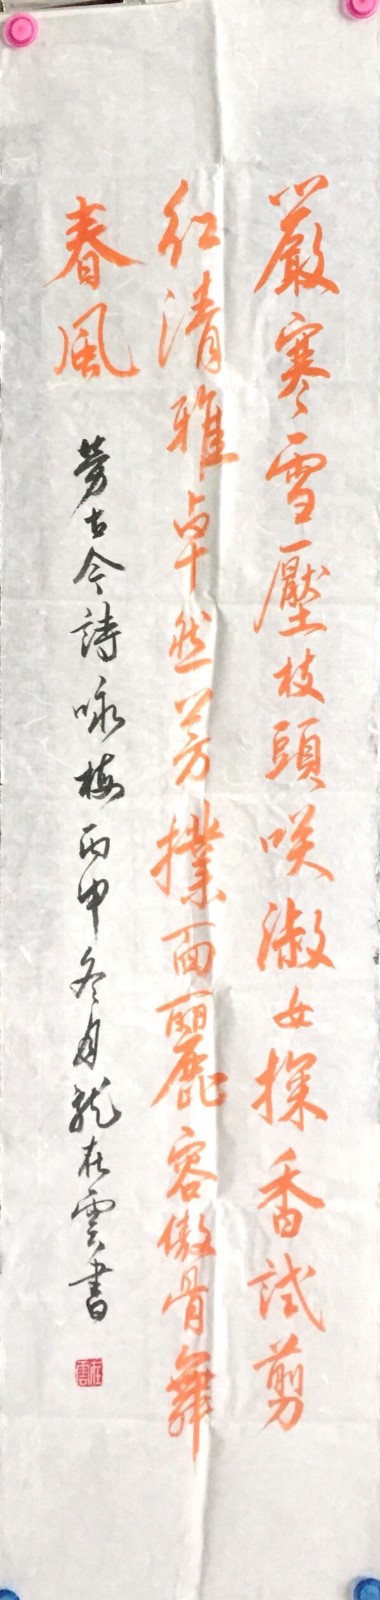 嚴寒雪壓枝頭咲淑女探香試剪
紅清雅卓然芳撲面麗容傲骨舞
春風
劳古今詩咏梅丙申冬月龍在雲書
在雲